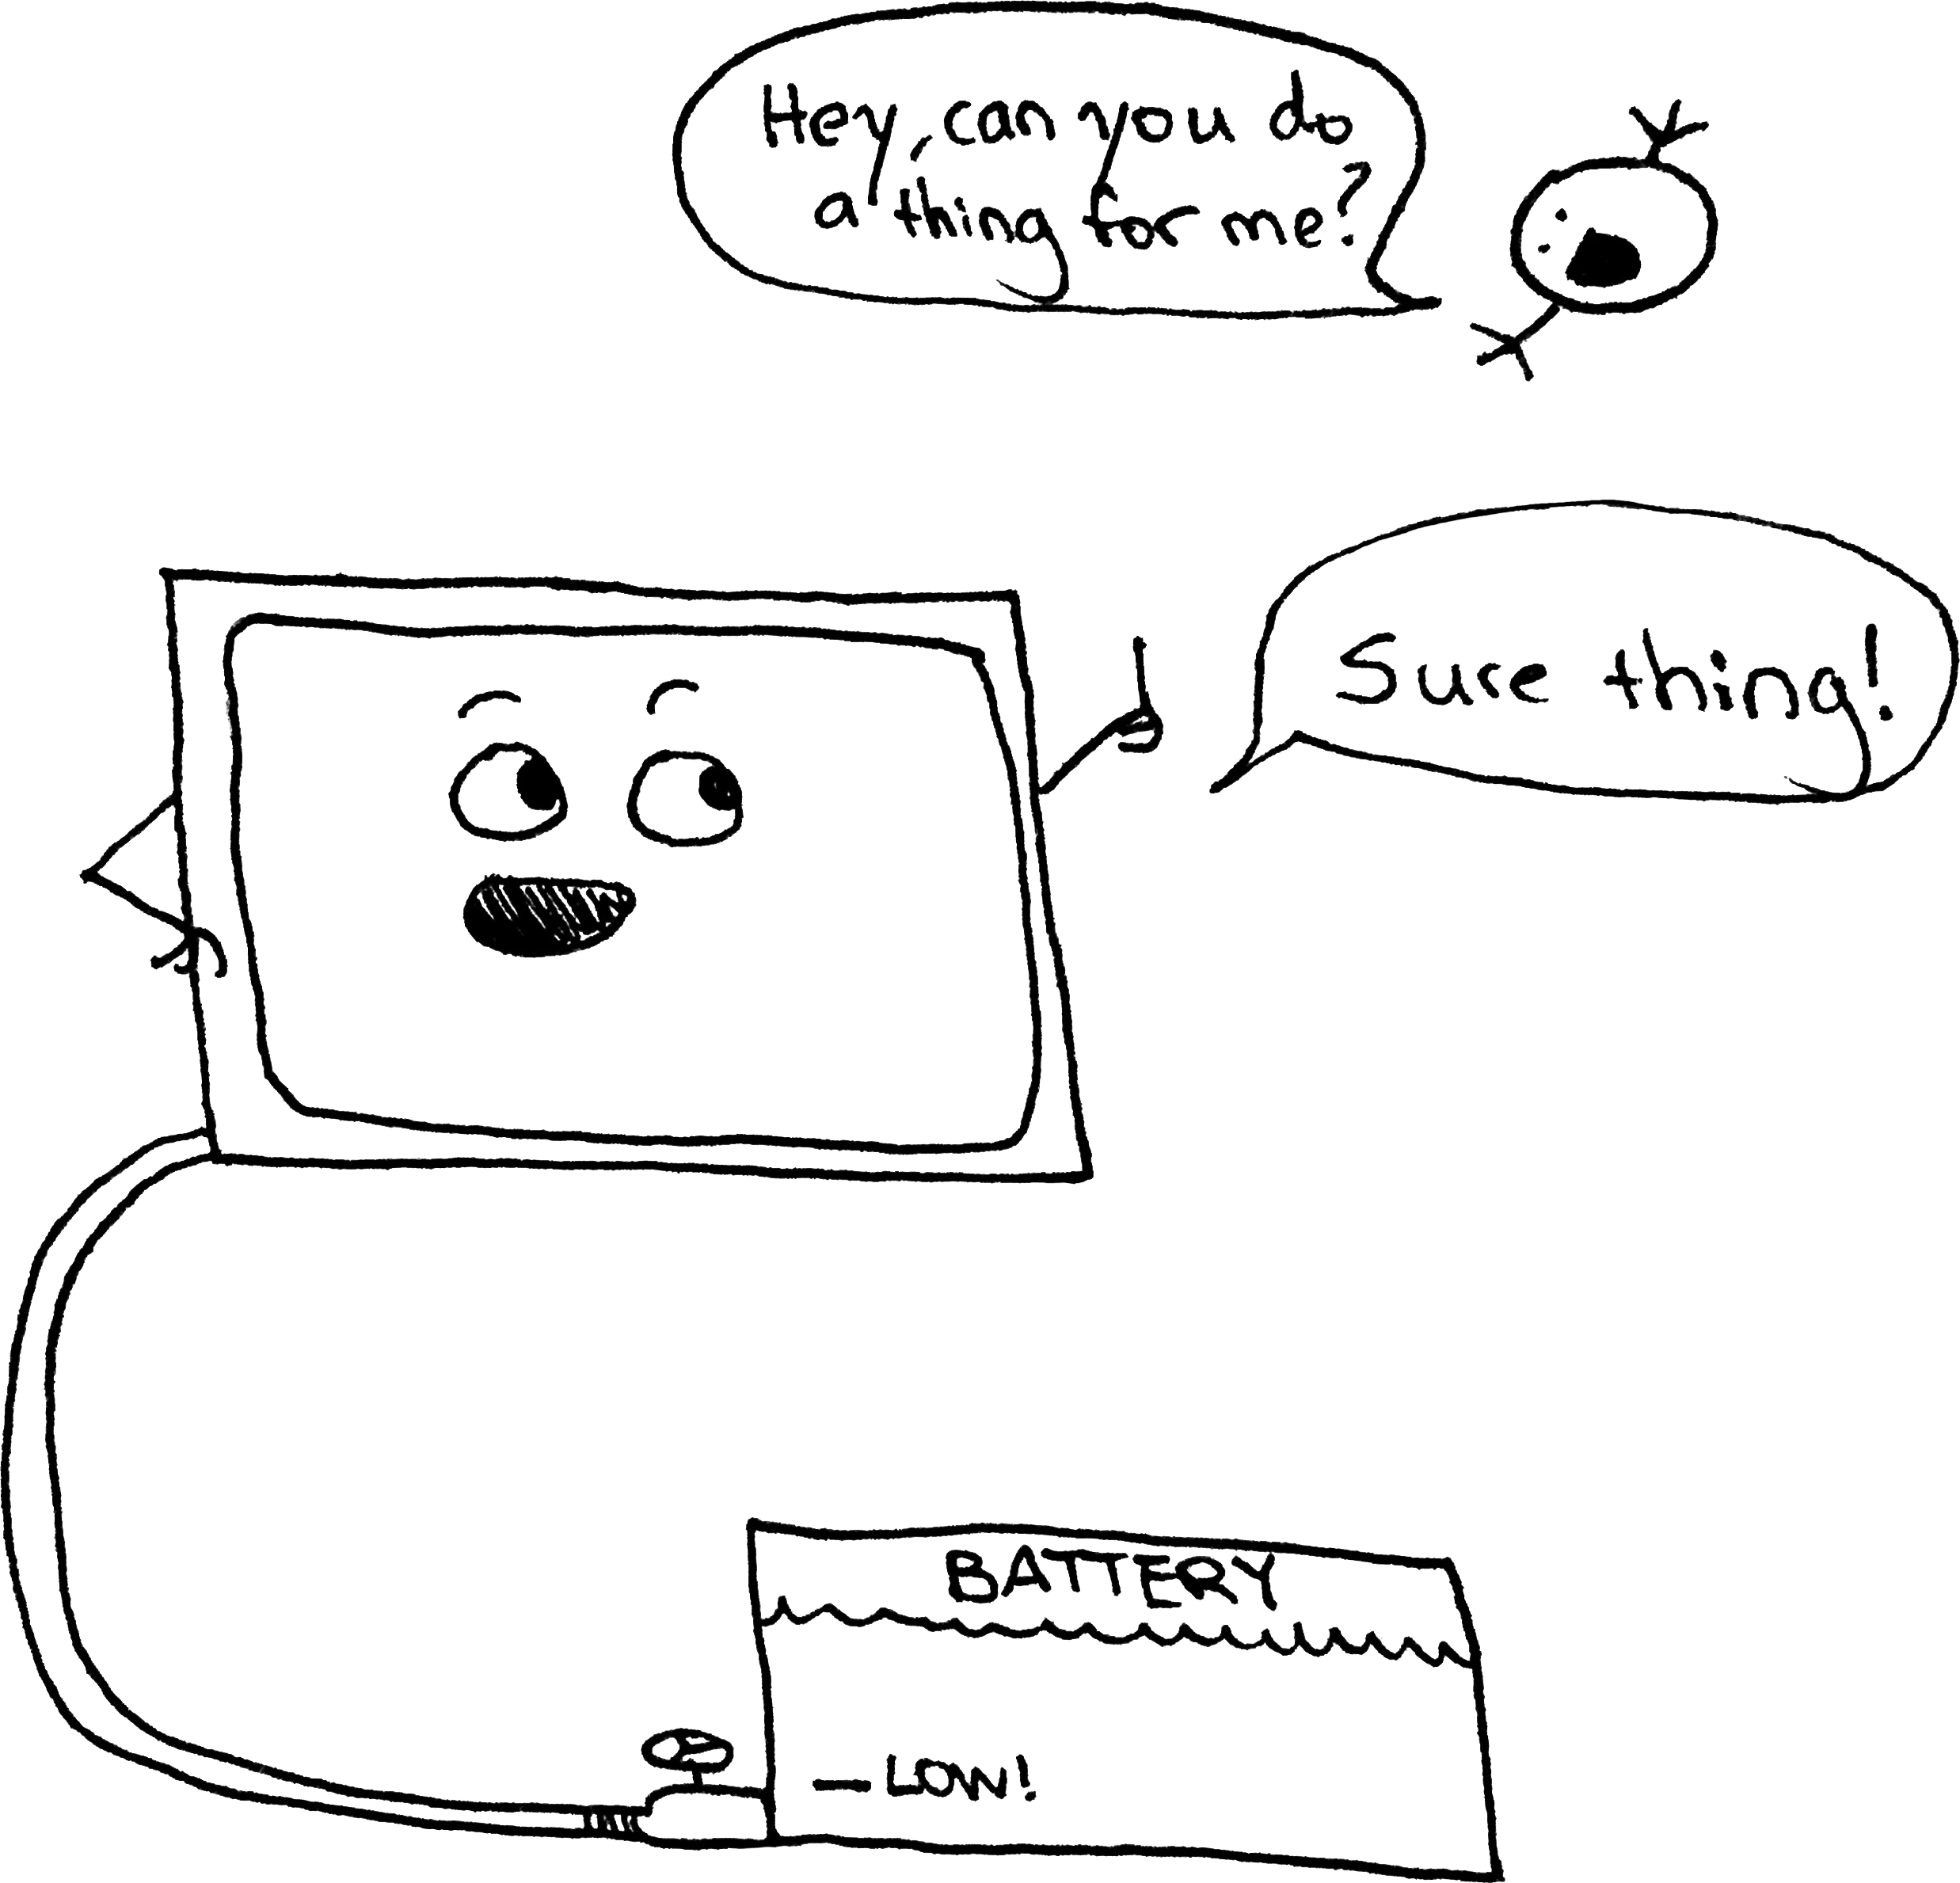 Hey, can you do
a thing for me?
Sure thing!
BATTERY
— LOW!